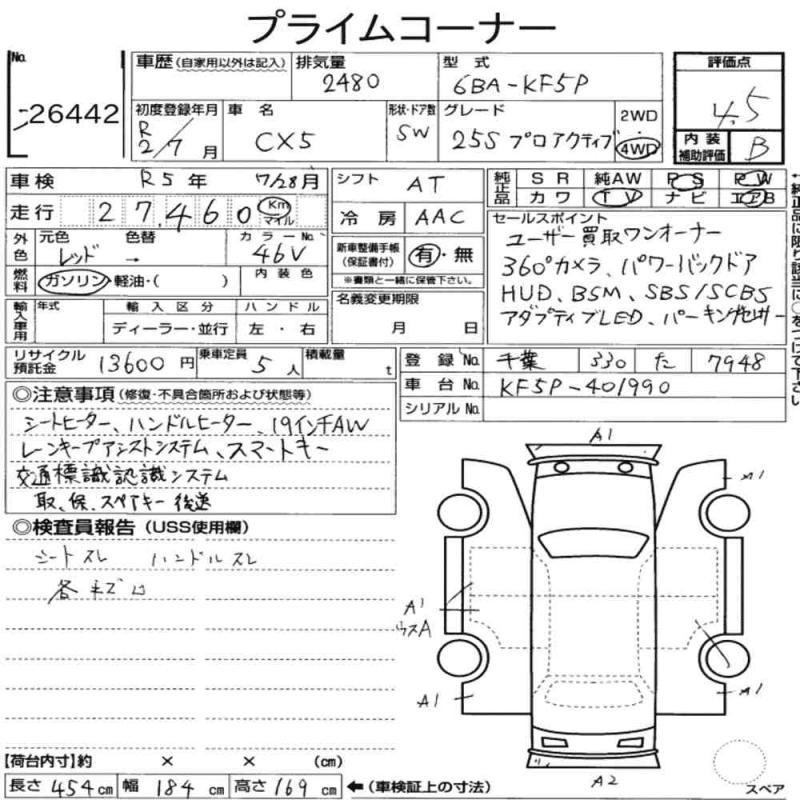 プライムコーナー
No.
26442
車歴 (自家用以外は記入)
排気量
2480
型式
6BA-KF5P
評価点
4.5
初度登録年月
R2/7月
車名
CX5
形状・ドア数
SW
グレード
25S プロアクティブ
2WD
4WD
内装
補助評価
B
車検
R5年 7/28月
走行
27,460
Km
マイル
シフト
AT
冷房
AAC
純正品
SR 純AW PS PW
カワ TV ナビ エアB
外色
元色
レッド
色替
→
カラーNo.
46V
新車整備手帳
(保証書付)
有・無
※書類と一緒に保管下さい。
セールスポイント
ユーザー買取ワンオーナー
360°カメラ、パワーバックドア
HUD、BSM、SBS/SCBS
アダプティブLED、パーキングセンサー
燃料
ガソリン・軽油・( )
内装色
名義変更期限
月 日
輸入車用
年式
輸入区分
ディーラー・並行
ハンドル
左・右
リサイクル
預託金
13600円
乗車定員
5人
積載量
t
登録No.
千葉 330 た 7948
車台No.
KF5P-401990
シリアルNo.
◎注意事項 (修復・不具合箇所および状態等)
シートヒーター、ハンドルヒーター、19インチAW
レーンキープアシストシステム、スマートキー
交通標識認識システム
取、保、スペアキー後送
◎検査員報告 (USS使用欄)
シートスレ ハンドルスレ
各キズ
A1
A1
A1
ウスA
A1
A1
A2
スペア
【荷台内寸】約 × × (cm)
長さ 454cm 幅 184cm 高さ 169cm ←(車検証上の寸法)